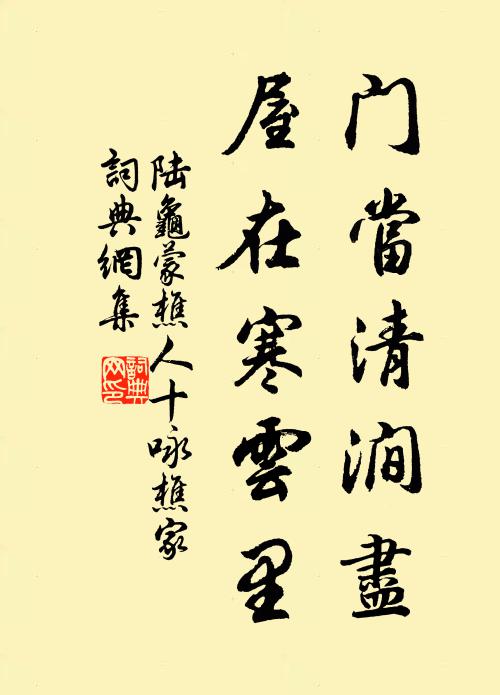 门當清澗盡
屋在寒雲里
陆龜蒙樵人十咏樵家
詞典網集
詞典网印